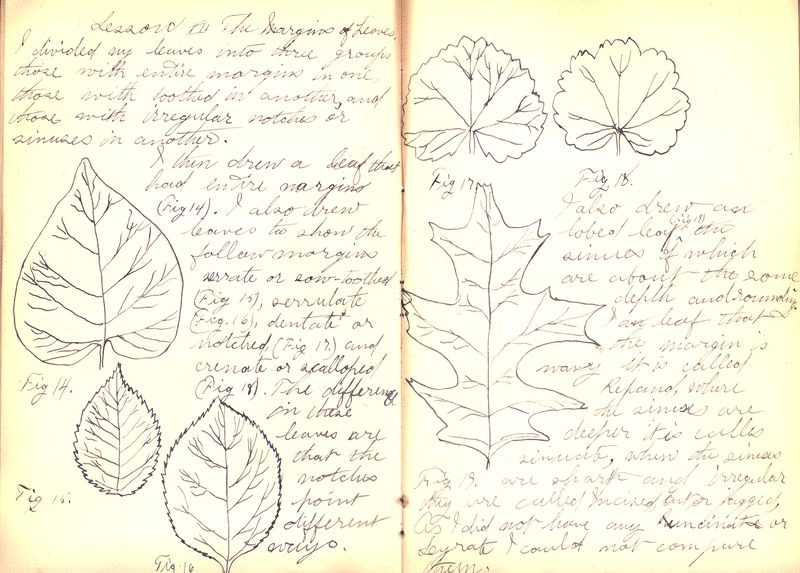 Lesson VII The Margins of Leaves.
I divided my leaves into three groups
those with entire margins in one,
those with toothed in another, and
those with irregular notches or
sinuses in another.
I then drew a leaf that
had entire margins
(Fig 14). I also drew
leaves to show the
follow margins
serrate or saw-toothed
(Fig 15), serrulate
(Fig. 16), dentate or
notched (Fig 17) and
crenate or scalloped
(Fig 18). The difference
in these
leaves are
that the
notches
point
different
ways.
Fig 14.
Fig 15.
Fig. 16
Fig 17
Fig 18.
I also drew an
lobed leaf (Fig 19) the
sinuses of which
are about the same
depth and
I an leaf that
the margin is
wavy it is called
Repand, where
the sinuses are
deeper it is called
sinuate, when the sinuses
Fig. 19. are sharp and irregular
they are called Incised, Cut or jagged,
As I did not have any runcinate or
Lyrate I could not compare
them.